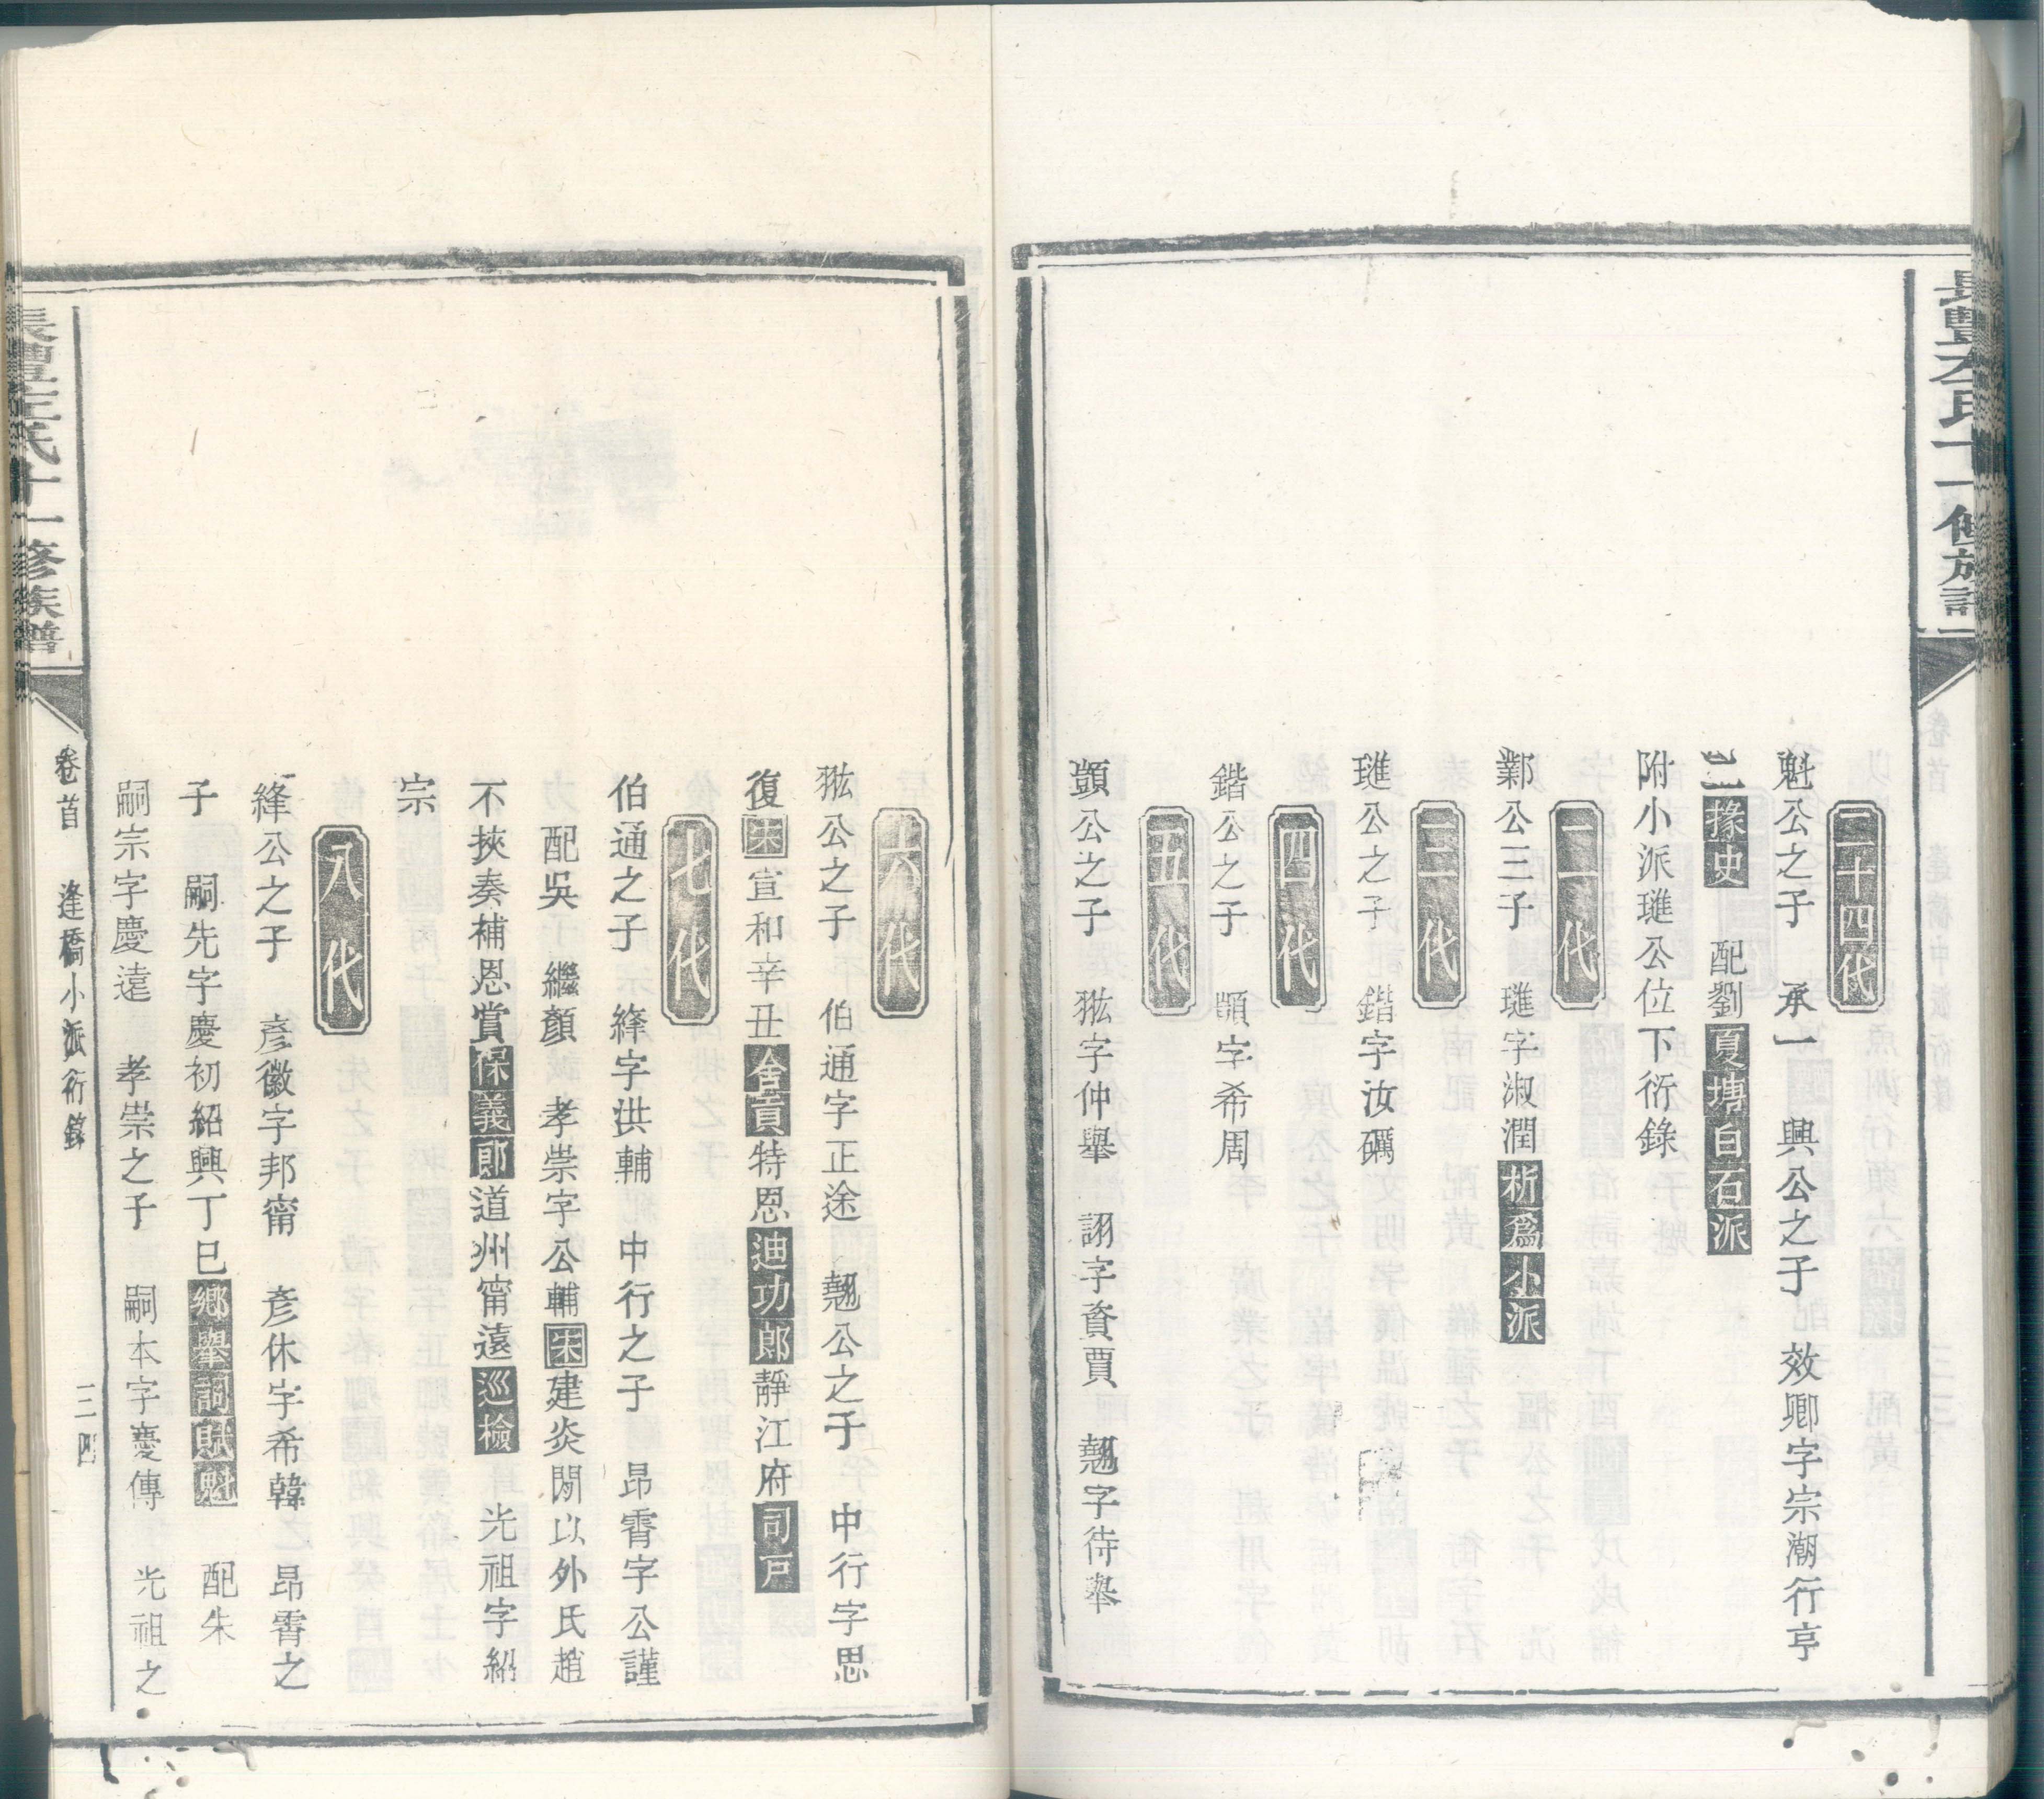 二十四代
魁公之子　承一　興公之子　效卿字宗潮行亨
掾史　配劉夏塼白石派
附小派璡公位下衍錄
二代
鄴公三子　璡字淑潤析爲小派
三代
璡公之子　鍇字汝礪
四代
鍇公之子　顗字希周
五代
顗公之子　谹字仲舉　詡字資賈　翹字待舉
六代
谹公之子　伯通字正途　翹公之子　中行字思
復宋宣和辛丑舍貢特恩迪功郎靜江府司戸
七代
伯通之子　絳字洪輔　中行之子　昂霄字公謹
配吳　繼顏　孝崇字公輔宋建炎閒以外氏趙
不挾奏補恩賞保義郎道州甯遠巡檢　光祖字紹
宗
八代
絳公之子　彥徽字邦甯　彥休字希韓　昂霄之
子　嗣先字慶初紹興丁巳鄉舉詞賦魁　配朱
嗣宗字慶遠　孝崇之子　嗣本字慶傳　光祖之
氏十一修族譜
卷首　逢橋小派衍錄　三四